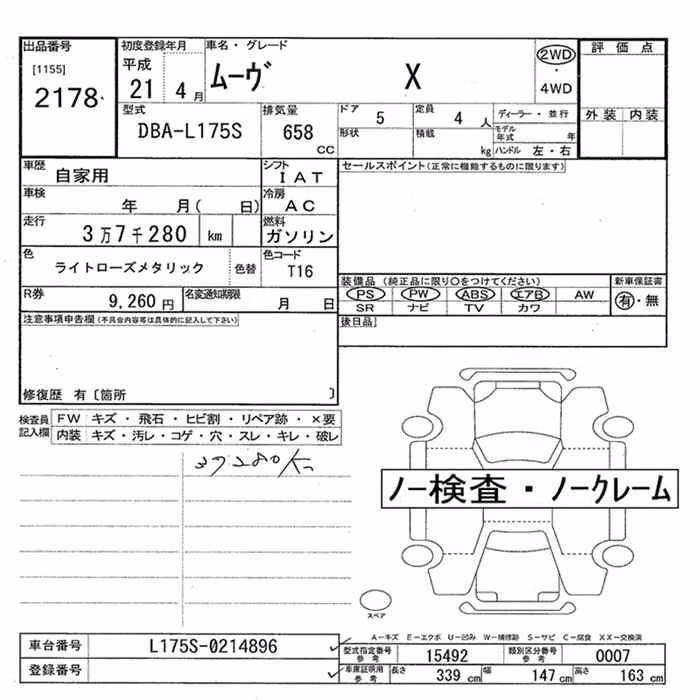 出品番号
[1155]
2178
初度登録年月
平成
21年 4月
車名・グレード
ムーヴ X
2WD
・
4WD
評価点
外装 内装
型式
DBA-L175S
排気量
658 CC
ドア 5
定員 4 人
形状
積載 kg
ディーラー・並行
モデル年式 年
ハンドル 左・右
車歴
自家用
シフト
IAT
車検
年 月( 日)
冷房
AC
走行
3万7千280 km
燃料
ガソリン
色
ライトローズメタリック
色替
色コード
T16
R券
9,260円
名変通知期限
月 日
セールスポイント(正常に機能するものに限ります)
装備品(純正品に限り○をつけてください)
PS PW ABS エアB AW
SR ナビ TV カワ
新車保証書
有・無
後日品
注意事項申告欄(不具合内容等は具体的に記入して下さい)
修復歴 有〔箇所 〕
検査員記入欄
FW キズ・飛石・ヒビ割・リペア跡・×要
内装 キズ・汚レ・コゲ・穴・スレ・キレ・破レ
37280km
ノー検査・ノークレーム
スペア
A-キズ E-エクボ U-凹み W-補修跡 S-サビ C-腐食 XX-交換済
車台番号 L175S-0214896
登録番号
型式指定番号参考 15492
類別区分番号参考 0007
車庫証明用参考 長さ 339 cm 幅 147 cm 高さ 163 cm